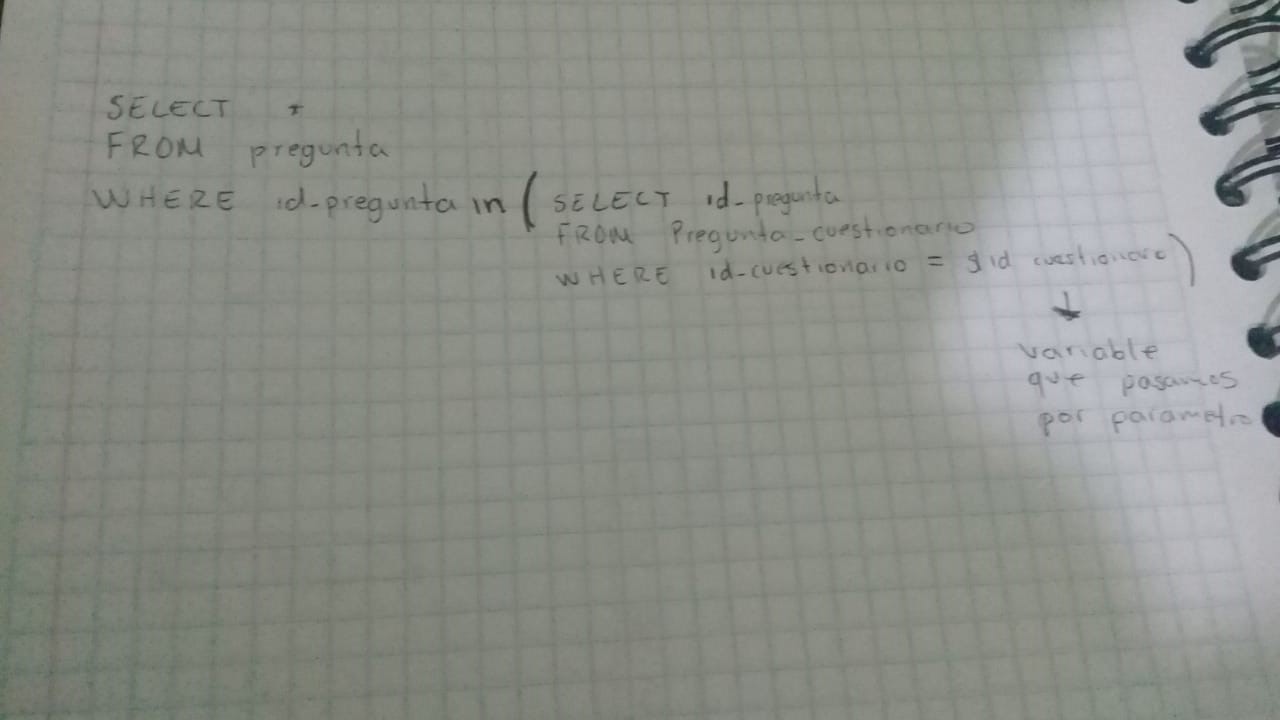 SELECT *
FROM pregunta
WHERE id-pregunta in ( SELECT id-pregunta
FROM Pregunta-cuestionario
WHERE id-cuestionario = $id cuestionario )
variable
que pasamos
por parametro